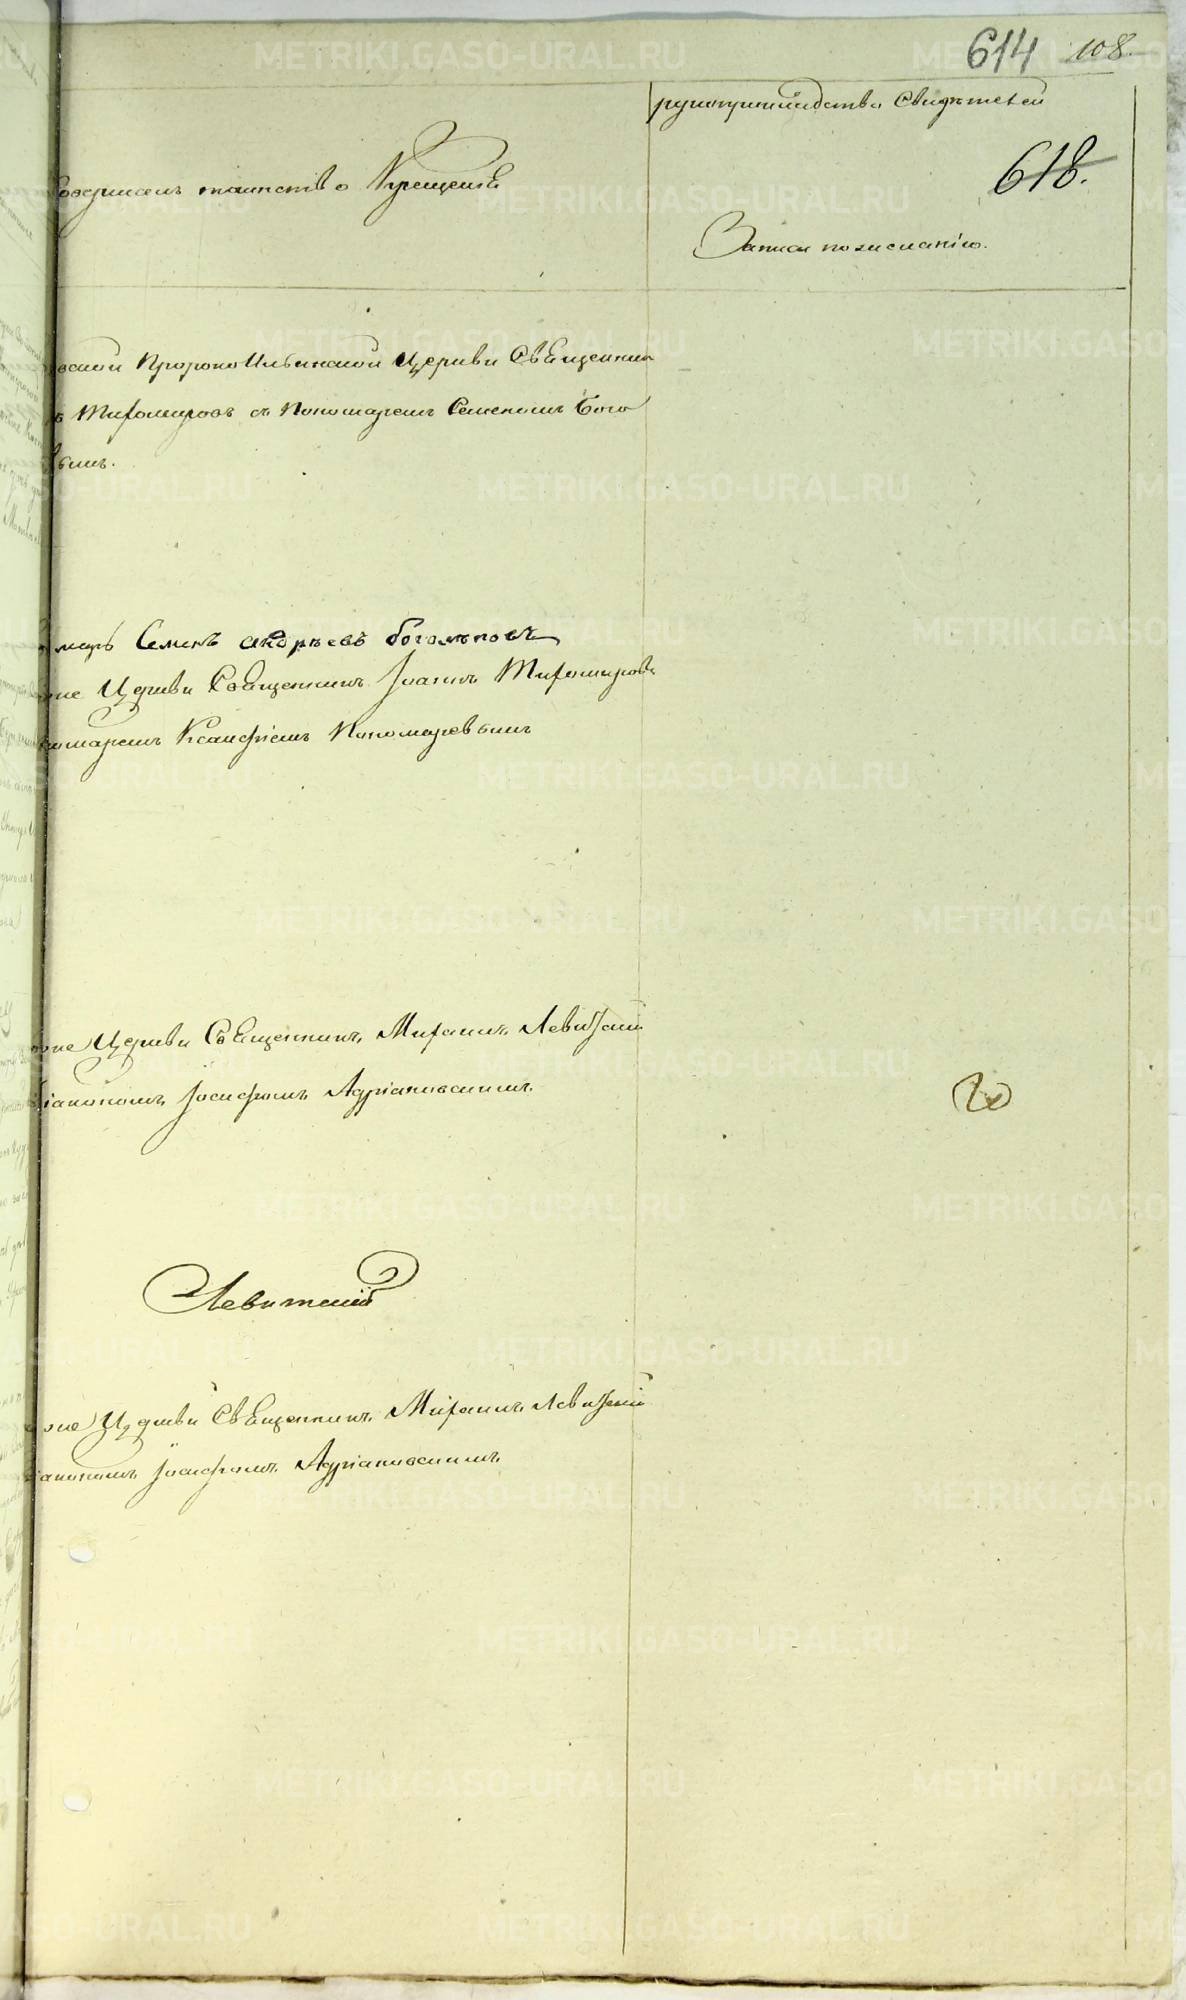 614 108.
рукоприкладство Свидѣтелей
618.
совершалъ таинство Крещенія
Запись по желанію.
Пророко Ильинской Церкви Священникъ
Тихомировъ съ Пономаремъ Семеномъ Бого
вымъ.
марь Семенъ андрѣевъ боголѣповъ
Церкви Священникъ Іоаннъ Тихомировъ
номаремъ Ксанфіемъ Пономаревымъ
Церкви Священникъ Михаилъ Левитскій
іакономъ Іосифомъ Адріановскимъ.
Левитскій
Церкви Священникъ Михаилъ Левитскій
іакономъ Іосифомъ Адріановскимъ.
METRIKI.GASO-URAL.RU